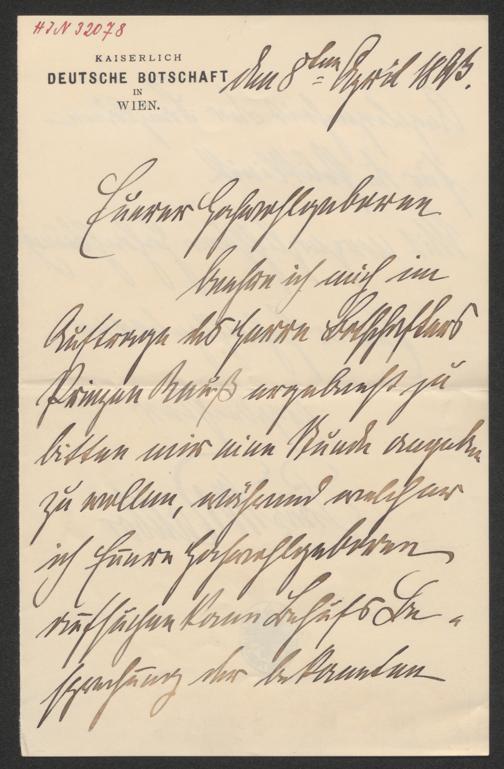 HJN 32078
KAISERLICH
DEUTSCHE BOTSCHAFT
IN
WIEN.
den 8ten April 1893.
Euerer Hochwohlgeboren
beehre ich mich im
Auftrage des Herrn Botschafters
Prinzen Reuß ergebenst zu
bitten mir eine Stunde angeben
zu wollen, während welcher
ich Euere Hochwohlgeboren
aufsuchen kann behufs Be-
sprechung der bekannten